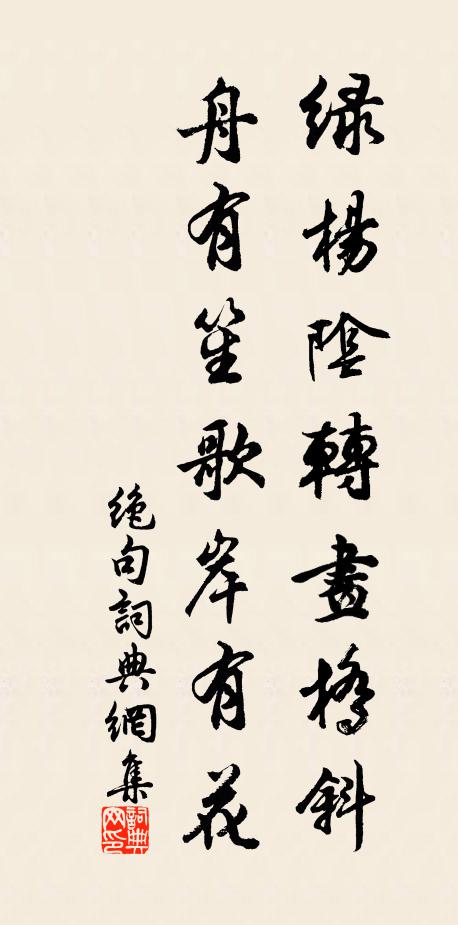 綠楊陰轉畫橋斜
舟有笙歌岸有花
絕句詞典網集
詞典
网印